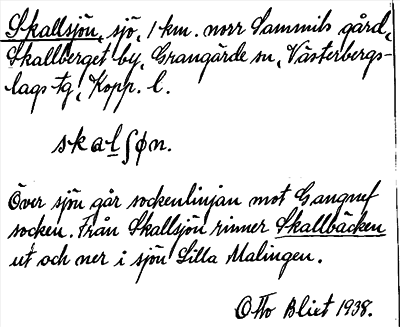 Skallsjön, sjö, 1 km. norr Sammils gård,
Skallberget by, Grangärde sn, Västerbergs-
lags tg, Kopp. l.
skalʃøn.
Över sjön går sockenlinjan mot Gangnef
socken. Från Skallsjön rinner Skallbäcken
ut och ner i sjön Lilla Malingen.
Otto Blixt 1938.